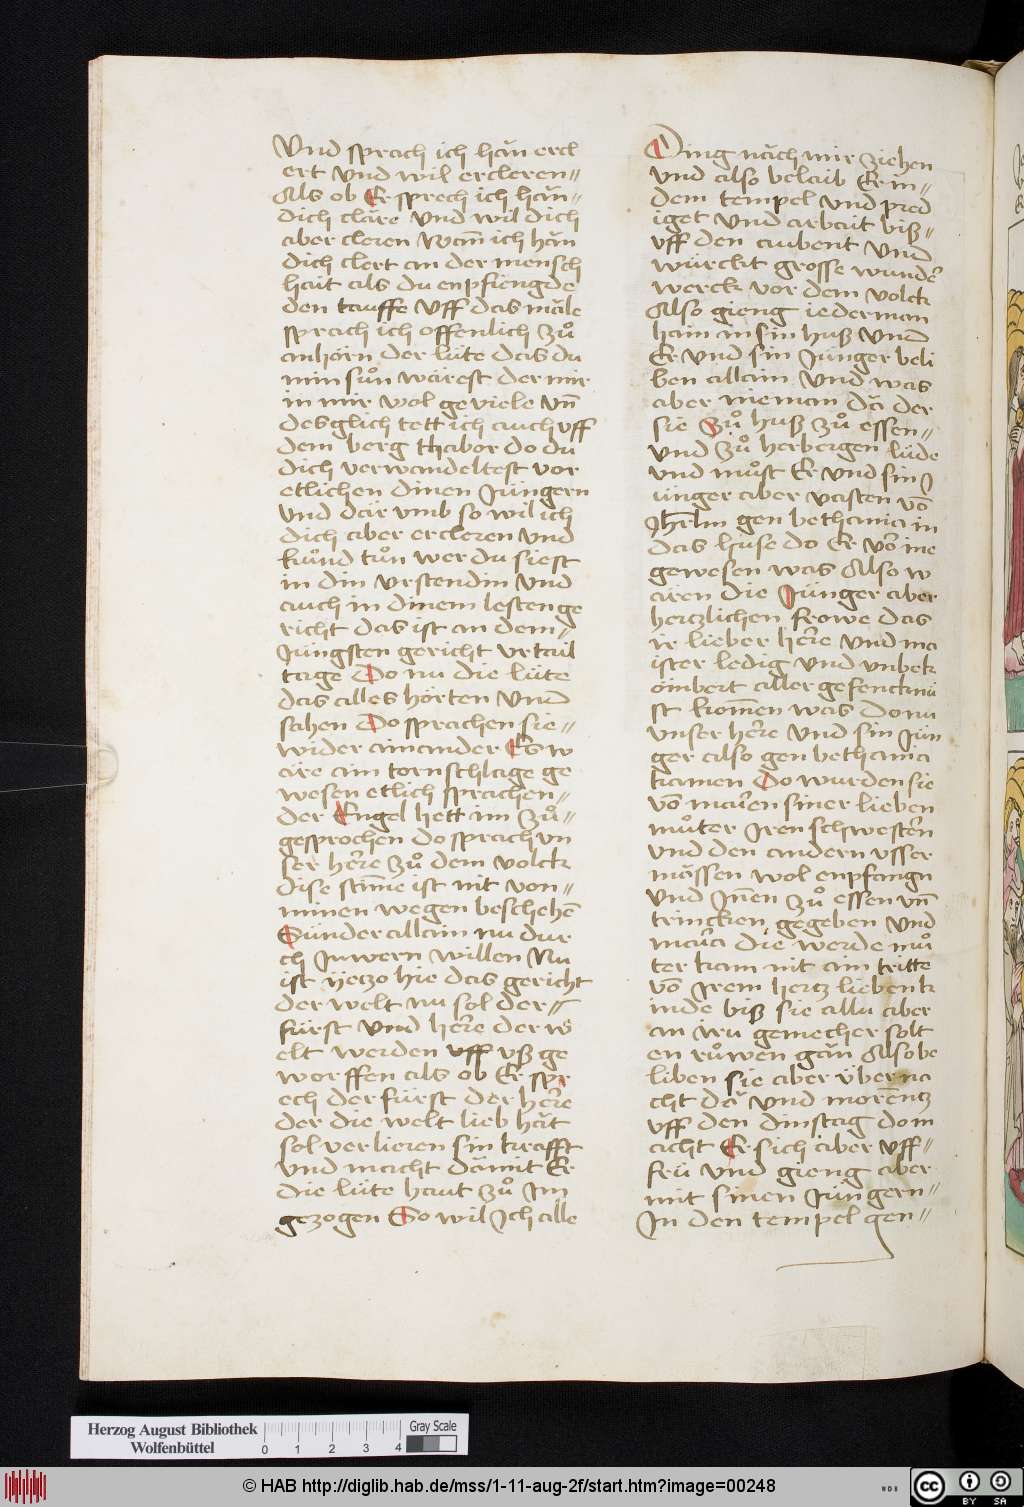 Vnd sprach ich hăn ercl
ert vnd wil ercleren〃
Als ob Er sprech ich hăn〃
dich clăre vnd wil dich
aber cleren Wan̄ ich hăn
dich clert an der mensch
hait als du enpfiengde
den tauffe vff das măle
sprach ich offenlich zů
anhörn der lüte das du
min sůn wärest der mir
in mir wol geviele vn̄
desglich tett ich auch vff
dem berg thabor do du
dich verwandeltest vor
etlichen dinen Jüngern
vnd dar vmb so wil ich
dich aber ercleren vnd
kůnd tůn wer du siest
in din vrstendin vnd
auch in dinem lesten ge
richt das ist an dem〃
Jüngsten gericht vrtail
tage Do nu die lüte
das alles hörten vnd
sahen Do sprachen sie〃
wider ainander Es w
äre ain tornschlage ge
wesen etlich sprachen〃
der Engel hett im zů〃
gesprochen do sprach vn
ser here zů dem volck
dise stim̄e ist nit von〃
minen wegen beschehē
Sünder allain nu dur
ch Juwern willen Nu
ist yetzo hie das gericht
der welt nu sol der〃
fürst vnd here der w
elt werden vff vß ge
worffen als ob Er spr
ech der fürst der here
der die welt lieb hăt
sol verlieren sin krafft
vnd macht dămit Er
die lüte haut zů Im
gezogen So wil Ich alle
Ding năch mir ziehen
vnd also belaib Er in〃
dem tempel vnd pred
iget vnd arbait biß〃
vff den aubent vnd
würckt grosse wunder
werck vor dem volck
Also gieng iederman
haim in sin huß vnd
Er vnd sin Jünger beli
ben allain vnd was
aber nieman dă der
sie zů huß zů essen〃
vnd zů herbergen lüde
vnd můst Er vnd sin J
ünger aber vasten vō
Jhrlm gen bethania in
das huse do Er vor ine
gewesen was Also w
ären die Jünger aber
hertzlichen frowe das
ir lieber here vnd ma
ister ledig vnd vnbek
ömbert aller gefencknü
st kom̄en was do nu
vnser here vnd sin Jün
ger also gen bethania
kamen Do wurden sie
vō maren siner lieben
můter Iren schwestern
vnd den andern vsser
mässen wol enpfangn
vnd In̄en zů essen vn̄
trincken gegeben vnd
maria die werde mů
ter kam nit ain tritte
vō Irem hertz lieben k
inde biß sie allu aber
an iru gemecher solt
en růwen găn Also be
liben sie aber über na
cht dă vnd morentz
vff den dinstag do m
acht Er sich aber vff〃
frü vnd gieng aber
mit sinen Jüngern〃
In den tempel gen〃
Herzog August Bibliothek
Wolfenbüttel
0 1 2 3 4
Gray Scale
© HAB http://diglib.hab.de/mss/1-11-aug-2f/start.htm?image=00248
WDB
CC BY SA